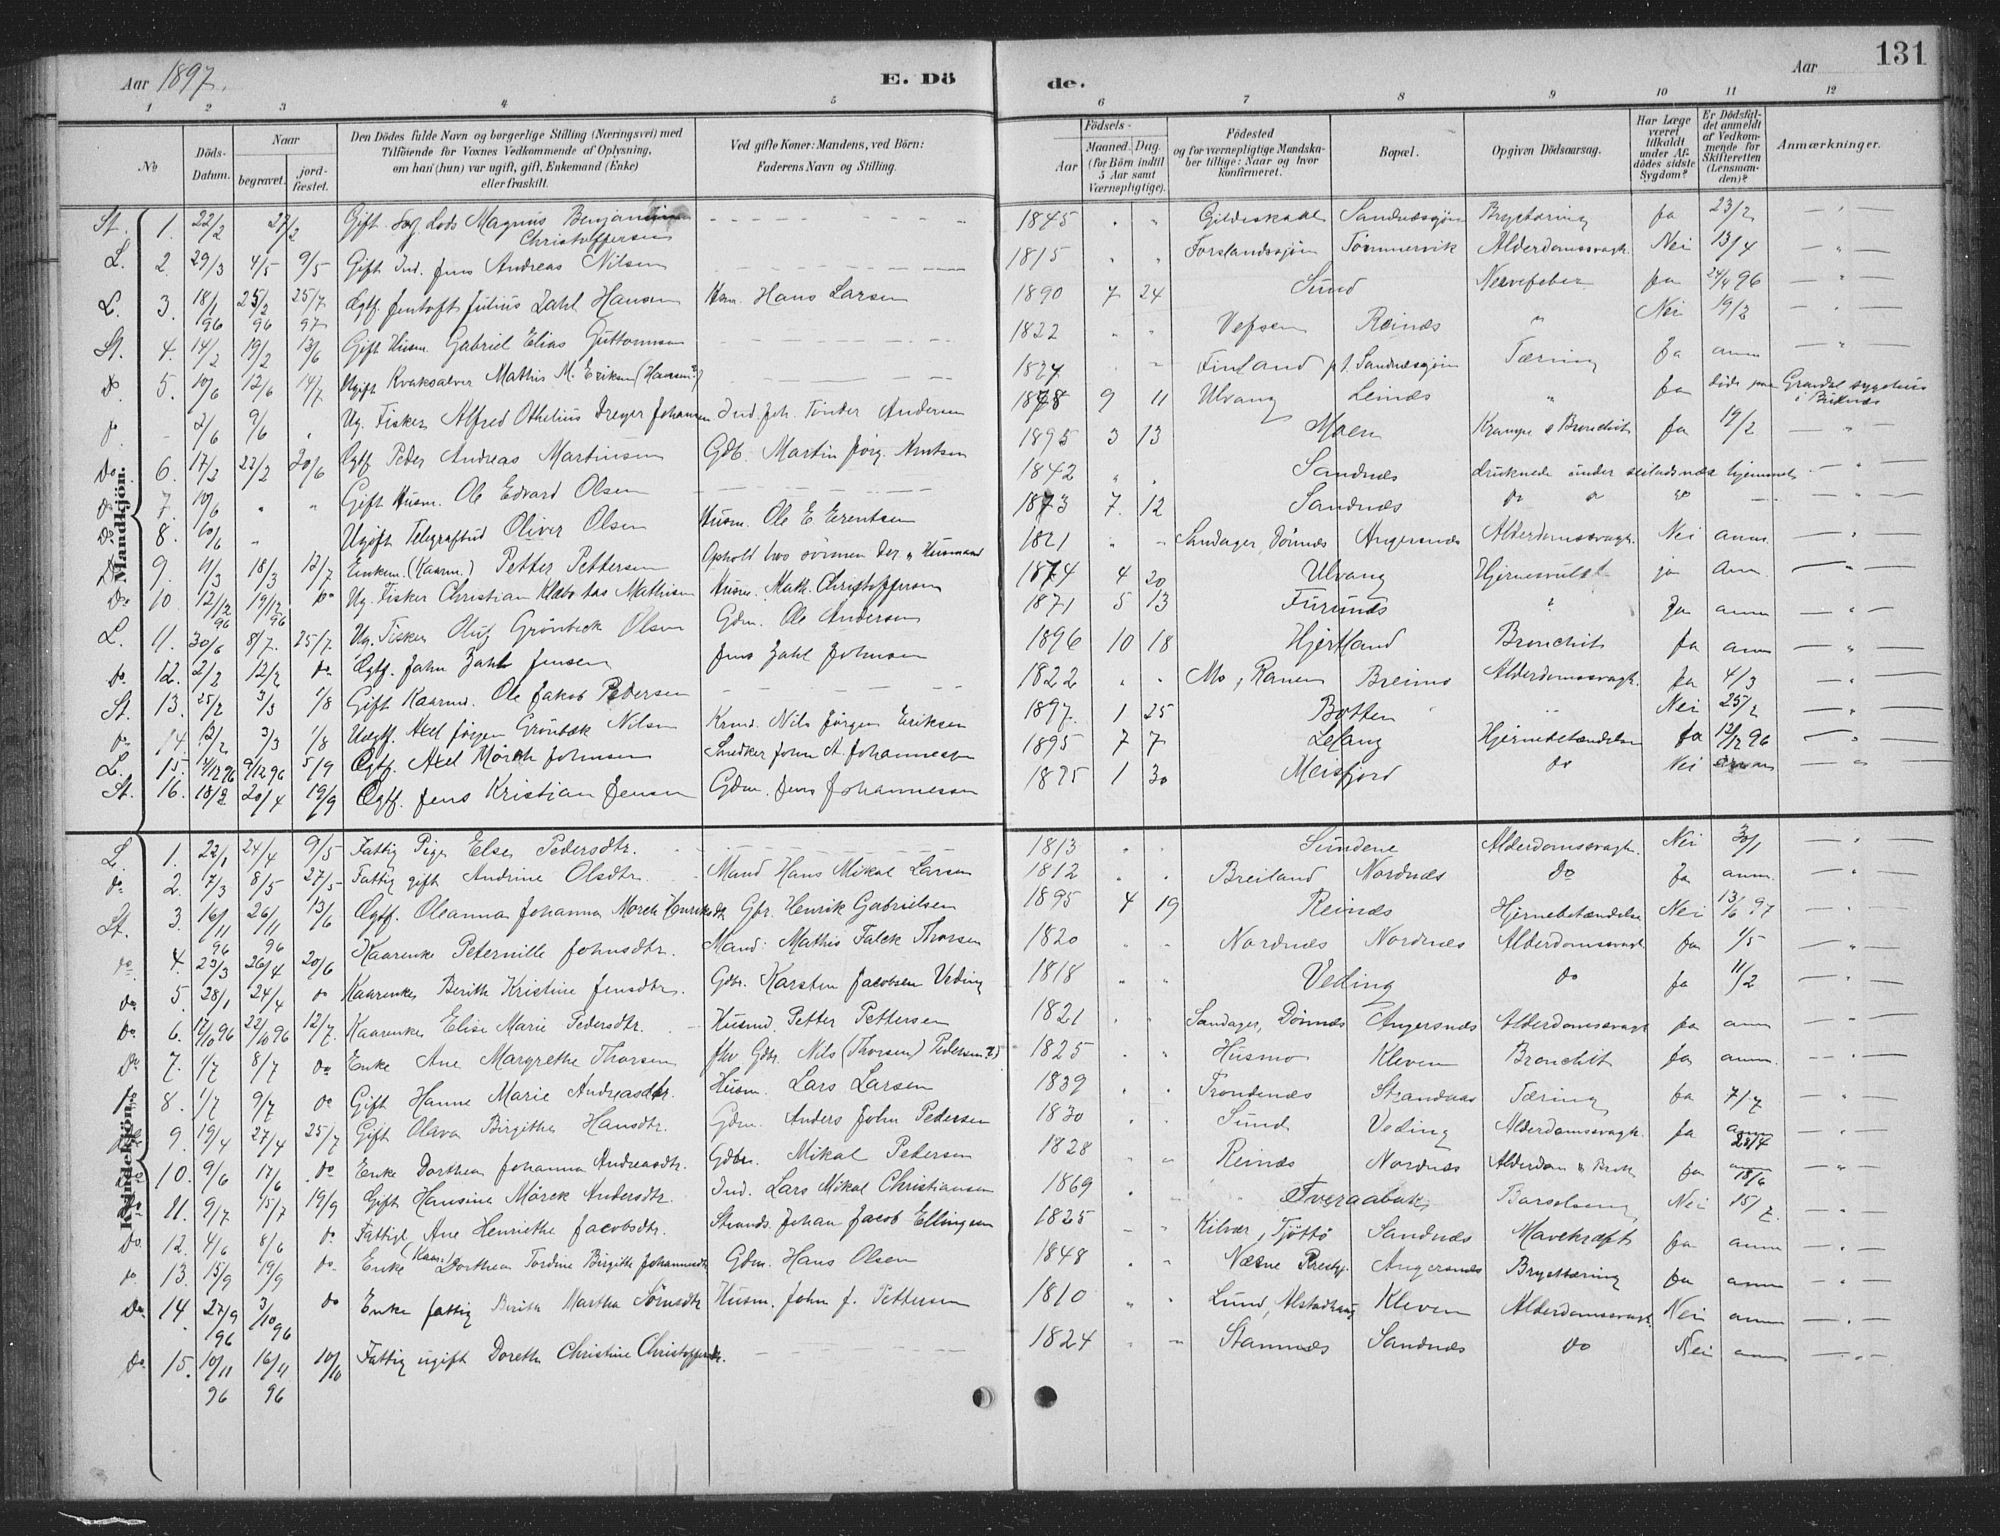 Aar 1897.
E. Dö
de.
Aar
131
1 2 3 4 5 6 7 8 9 10 11 12
No
Döds-Datum.
Naar
begravet.
jordfæstet.
Den Dödes fulde Navn og borgerlige Stilling (Næringsvei) med
Tilföiende for Voxnes Vedkommende af Oplysning,
om han (hun) var ugift, gift, Enkemand (Enke)
eller fraskilt.
Ved gifte Koner: Mandens, ved Börn:
Faderens Navn og Stilling.
Födsels-
Aar
Maaned. Dag.
(for Börn indtil 5 Aar samt Værnepligtige).
Födested
og for værnepligtige Mandskaber tillige: Naar og hvor konfirmeret.
Bopæl.
Opgiven Dödsaarsag.
Har Læge været tilkaldt under Afdödes sidste Sygdom?
Er Dödsfaldet anmeldt af Vedkommende for Skifteretten (Lensmanden)?
Anmærkninger.
Mandkjön.
St. 1. 22/2 27/2 Gift Lods Magnus Benjamin Christoffersen 1845 Gildeskaal Sandnæssjøen Brysttæring Ja 23/2
L. 2. 29/3 4/5 9/5 Gift Ind. Jens Andreas Nilsen 1815 Forslandssjøn Tømmervik Alderdomssvagh. Nei 13/4
L. 3. 18/1 96 25/2 96 25/7 97 Ægtf. Jentoft Julius Zahl Hansen Hans Larsen 1890 7 24 Sund Nervefeber Ja 24/4 96
St. 4. 14/2 19/2 13/6 Gift Husm. Gabriel Elias Guttormsen 1822 Vefsen Reinæs " Nei 19/2
Do 5. 10/6 12/6 14/7 Ugift Kvaksalver Mathis M. Eriksen (Hansen?) 1827 Finland p.t. Sandnæssjøen Tæring Ja anm
- 2/6 9/6 " Ug. Fisker Alfred Othelius Dreyer Johansen Ind. Joh. Tønder Andersen 1878 9 11 Ulvang Leinæs " Ja døde paa Gravdal sygehus i Buksnæs
Do 6. 17/2 22/2 20/6 Ægtf. Peder Andreas Martinsen Gdb. Martin Jørg. Knutsen 1895 3 13 Moen Krampe & Bronchit Ja 19/2
Do 7. 10/6 " " Gift Husm. Ole Edvard Olsen 1842 Sandnæs druknede under hjemmet
Do 8. 10/6 " Ugift Telegrafbud Oliver Olsen Husm. Ole E. Erentsen 1873 7. 12 Sandnæs do " do
9. 11/3 18/3 12/7 Enkem. (Kaarm.) Petter Pettersen Ophold hos sønnen der " Husmand 1821 Sandager, Dønnæs Angersnæs Alderdomssvagh. Nei anm.
Do 10. 12/12 96 19/12 96 Do Ug. Fisker Christian Klæbo Mathisen Husm. Math. Christoffersen 1874 4 20 Ulvang Hjernesvulst Ja Anm.
L. 11. 30/6 8/7. 25/7. Ug. Fisker Oluf Grønbeck Olsen Gdm. Ole Andersen 1871 5 13 Furunæs " Ja anm
Do. 12. 2/2 12/2 Do Ægtf. Jahn Zahl Jensen Jens Zahl Johnsen 1896 10 18 Hjertland Bronchit Ja anm
St. 13. 25/2 3/3 1/8 Gift Kaarmd. Ole Jakob Pedersen 1822 Mo, Ranen Breimo Alderdomssvagh. Ja 4/3
Do 14. 12/2 3/3 1/8 Uægtf. Axel Jørgen Grønbæk Nilsen Krmd. Nils Jørgen Eriksen 1897. 1 25 Botten " Nei 25/2
L. 15. 4/12 96 9/12 96 5/9 Ægtf. Axel Mørch Johnsen Snedker John A. Johannessen 1895 7 7 Leland Hjernebetændelse Ja 12/12 96
St. 16. 18/2 20/4 19/9 Ægtf. Jens Kristian Jensen Gdm. Jens Johannessen 1895 1 30 Meisfjord Do Nei
Kvindekjön.
L. 1. 22/1 24/4 9/5 Fattig Pige Else Pedersdtr. 1813 Sundene Alderdomssvagh. Nei 30/1
Do 2. 7/3 8/5 27/5 Fattig gift Andrine Olsdtr. Mand Hans Mikal Larsen 1812 Breiland Nordnæs Do Ja anm.
St. 3. 16/11 96 26/11 96 13/6 Ægtf. Oleanna Johanna Mørch Henriksdtr Gbr. Henrik Gabrielsen 1895 4 19 Reinæs Hjernebetændelse Nei 13/6 97
Do 4. 23/3 26/4 20/6 Kaarenke Peternille Johnsdtr. Mand: Mathis Falck Thorsen 1820 Nordnæs Nordnæs Alderdomssvagh Ja 1/5
Do 5. 28/1 24/4 Do Kaarenke Berith Kristine Jensdtr. Gdbr. Karsten Jacobsen Veding 1818 Veding Do Ja 11/2
Do 6. 17/10 96 22/10 96 12/7. Kaarenke Elise Marie Pedersdtr. Husmd. Petter Pettersen 1821 Sandager, Dønnæs Angersnæs Alderdomssvagh Ja anm
Do 7. 1/7 8/7 Do Enke Ane Margrethe Thorsen fhv Gdbr. Nils (Thorsen) Pedersen 1825 Husmo Kleven Bronchit Ja anm.
8. 1/7 9/7 Do Gift Hanne Marie Andreasdtr. Husm. Lars Larsen 1839 Trondenæs Strandnæs Tæring Ja 7/7
9. 19/4 27/4 25/7 Gift Olava Birgitha Hansdtr. Gdm. Anders John Pedersen 1830 Sund Veding Alderdomssvagh. Ja anm 28/4
10. 9/6 17/6 Do Enke Dorthea Johanna Andreasdtr. Gdbr. Mikal Pedersen 1828 Reinæs Nordnæs Alderdom & Bronk Ja anm 18/6
Do 11. 9/7 15/7 19/9 Gift Hansine Mørck Andersdtr. Ind. Lars Mikal Christiansen 1869 Tveraabak Barselseng Nei 15/7.
Do. 12. 4/6 8/6 Do Fattigl. Ane Henriette Jacobsdtr. Strands. Johan Jacob Ellingsen 1825 Kilvær, Tjøttø Sandnæs Mavekræft Ja anm
Do 13. 15/9 19/9 Do Enke (Kaar) Dorthea Tordine Birgitte Johannesdtr Gdm. Hans Olsen 1848 Næsne Prestgj. Angersnæs Brysttæring Ja anm
Do 14. 27/9 96 3/10 96 Do Enke fattig Berith Martha Sørnsdtr Husm. John J. Pettersen 1810 Lund, Alstadhaug Kleven Alderdomssvagh. Nei anm
Do. 15. 10/11 96 16/11 96 10/10 Fattig ugift Doreth. Christine Christoffersdtr. 1824 Stamnæs Sandnæs Do Nei anm